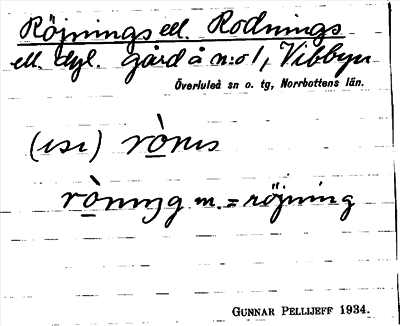 Röjnings ell. Rodnings
ell. dyl. gård å n:o 1, Vibbyn
Överluleå sn o. tg, Norrbottens län.
(ısı) ròns
rònıŋg m. = röjning
GUNNAR PELLIJEFF 1934.